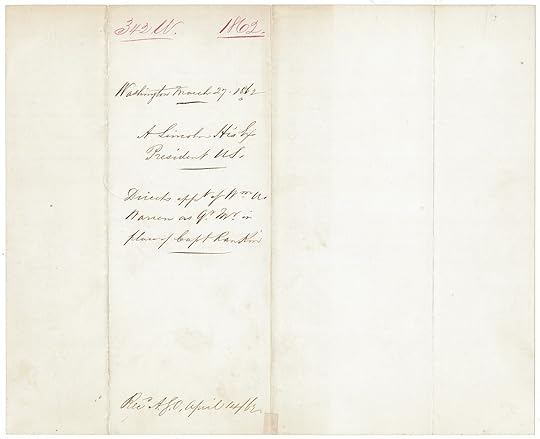 342 W. 1862.
Washington March 27. 1862
A Lincoln His Ex
President U.S.
Directs appt of Wm A.
Warren as Qr Mr in
place of Capt Rankin
Recd A.G.O. April 14/62